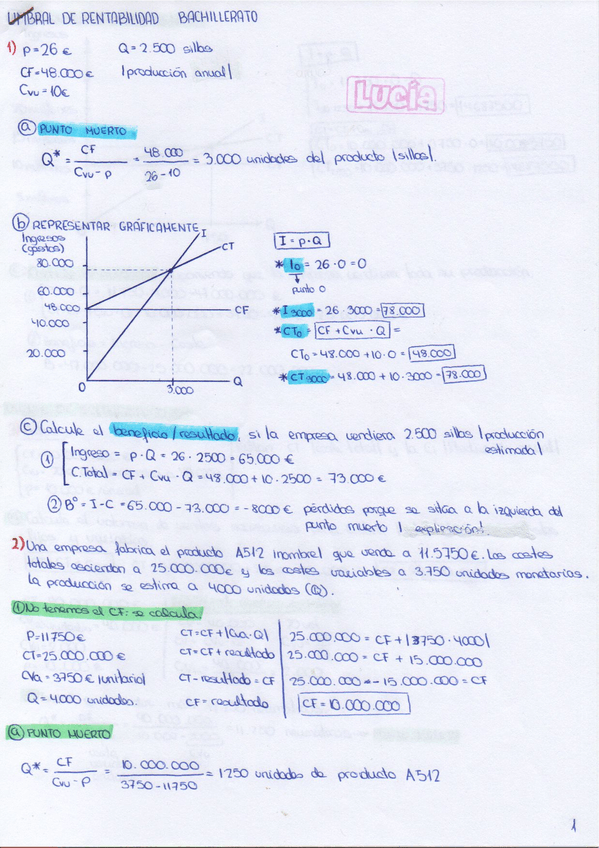 UMBRAL DE RENTABILIDAD BACHILLERATO
1) p=26€ Q=2.500 sillas
CF=48.000€ (producción anual)
Cvu=10€
Lucía
a) PUNTO MUERTO
Q* = CF / Cvu-p = 48.000 / 26-10 = 3.000 unidades del producto (sillas).
b) REPRESENTAR GRÁFICAMENTE
Ingresos
(gastos)
I
CT
80.000
60.000
48.000
CF
40.000
20.000
0
3.000
Q
I = p·Q
* I₀ = 26·0 = 0
punto 0
* I₃₀₀₀ = 26·3000 = 78.000
* CT₀ = CF + Cvu · Q =
CT₀ = 48.000 + 10·0 = 48.000
* CT₃₀₀₀ = 48.000 + 10·3000 = 78.000
c) Calcule el beneficio/resultado, si la empresa vendiera 2.500 sillas (producción
estimada)
① Ingreso = p·Q = 26·2500 = 65,000€
C.Total = CF + Cvu · Q = 48.000 + 10·2500 = 73.000€
② Bº = I-C = 65.000 - 73.000 = -8000€ pérdidas porque se sitúa a la izquierda del
punto muerto (explicación).
2) Una empresa fabrica el producto A512 (nombre) que vende a 11.5750€. Los costes
totales ascienden a 25.000.000€ y los costes variables a 3.750 unidades monetarias.
La producción se estima a 4000 unidades (Q).
① No tenemos el CF: se calcula.
P=11750€
CT=25.000.000€
CVa=3750€ (unitario)
Q=4000 unidades.
CT=CF+(Cva·Q)
CT=CF+resultado
CT-resultado=CF
CF=resultado
25.000.000 = CF+(3750·4000)
25.000.000 = CF + 15.000.000
25.000.000 - 15.000.000 = CF
CF=10.000.000
a) PUNTO MUERTO
Q* = CF / Cvu-P = 10.000.000 / 3750-11750 = 1250 unidades de producto A512
1